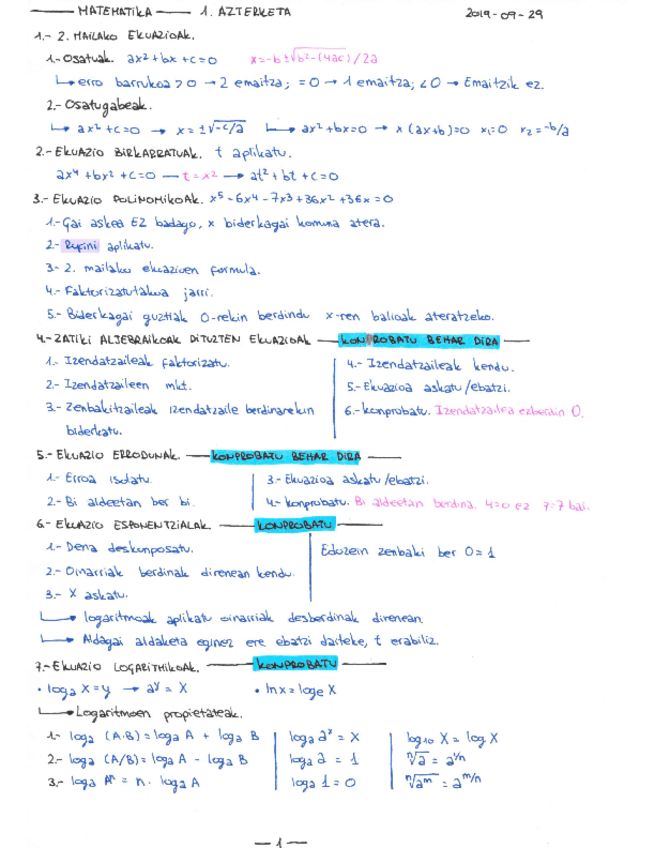 MATEMATIKA — 1. AZTERKETA 2019-09-29
1.- 2. MAILAKO EKUAZIOAK.
1.- Osatuak. ax²+bx+c=0 x=-b±√b²-(4ac)/2a
↳ erro barrukoa >0 → 2 emaitza; =0 → 1 emaitza; <0 → Emaitzik ez.
2.- Osatugabeak.
↳ ax²+c=0 → x=±√-c/a ↳ ax²+bx=0 → x(ax+b)=0 x₁=0 x₂=-b/a
2.- EKUAZIO BIKARRATUAK. t aplikatu.
ax⁴+bx²+c=0 — t=x² → at²+bt+c=0
3.- EKUAZIO POLINOMIKOAK. x⁵-6x⁴-7x³+36x²+36x=0
1.- Gai askea EZ badago, x biderkagai komuna atera.
2.- Rufini aplikatu.
3.- 2. mailako ekuazioen formula.
4.- Faktorizatutakoa jarri.
5.- Biderkagai guztiak 0-rekin berdindu x-ren balioak ateratzeko.
4.- ZATIKI ALJEBRAIKOAK DITUZTEN EKUAZIOAK — KONPROBATU BEHAR DIRA
1.- Izendatzaileak faktorizatu.
2.- Izendatzaileen mkt.
3.- Zenbakitzaileak izendatzaile berdinarekin
biderkatu.
4.- Izendatzaileak kendu.
5.- Ekuazioa askatu/ebatzi.
6.- Konprobatu. Izendatzailea ezberdin 0.
5.- EKUAZIO ERRODUNAK. — KONPROBATU BEHAR DIRA
1.- Erroa isolatu.
2.- Bi aldeetan ber bi.
3.- Ekuazioa askatu/ebatzi.
4.- Konprobatu. Bi aldeetan berdina. 4=0 ez 7=7 bai.
6.- EKUAZIO ESPONENTZIALAK. — KONPROBATU
1.- Dena deskonposatu.
2.- Oinarriak berdinak direnean kendu.
3.- X askatu.
Edozein zenbaki ber 0=1
↳ logaritmoak aplikatu oinarriak desberdinak direnean
↳ Aldagai aldaketa eginez ere ebatzi daiteke, t erabiliz.
7.- EKUAZIO LOGARITMIKOAK. — KONPROBATU
• logₐ X=y → aʸ=X • lnx=logₑ X
↳ Logaritmoen propietateak.
1.- logₐ (A·B)=logₐ A + logₐ B
2.- logₐ (A/B)=logₐ A - logₐ B
3.- logₐ Aⁿ = n. logₐ A
logₐ aˣ = X
logₐ a = 1
logₐ 1=0
log₁₀ X=log X
ⁿ√a = a^1/n
ⁿ√aᵐ = a^m/n
— 1 —